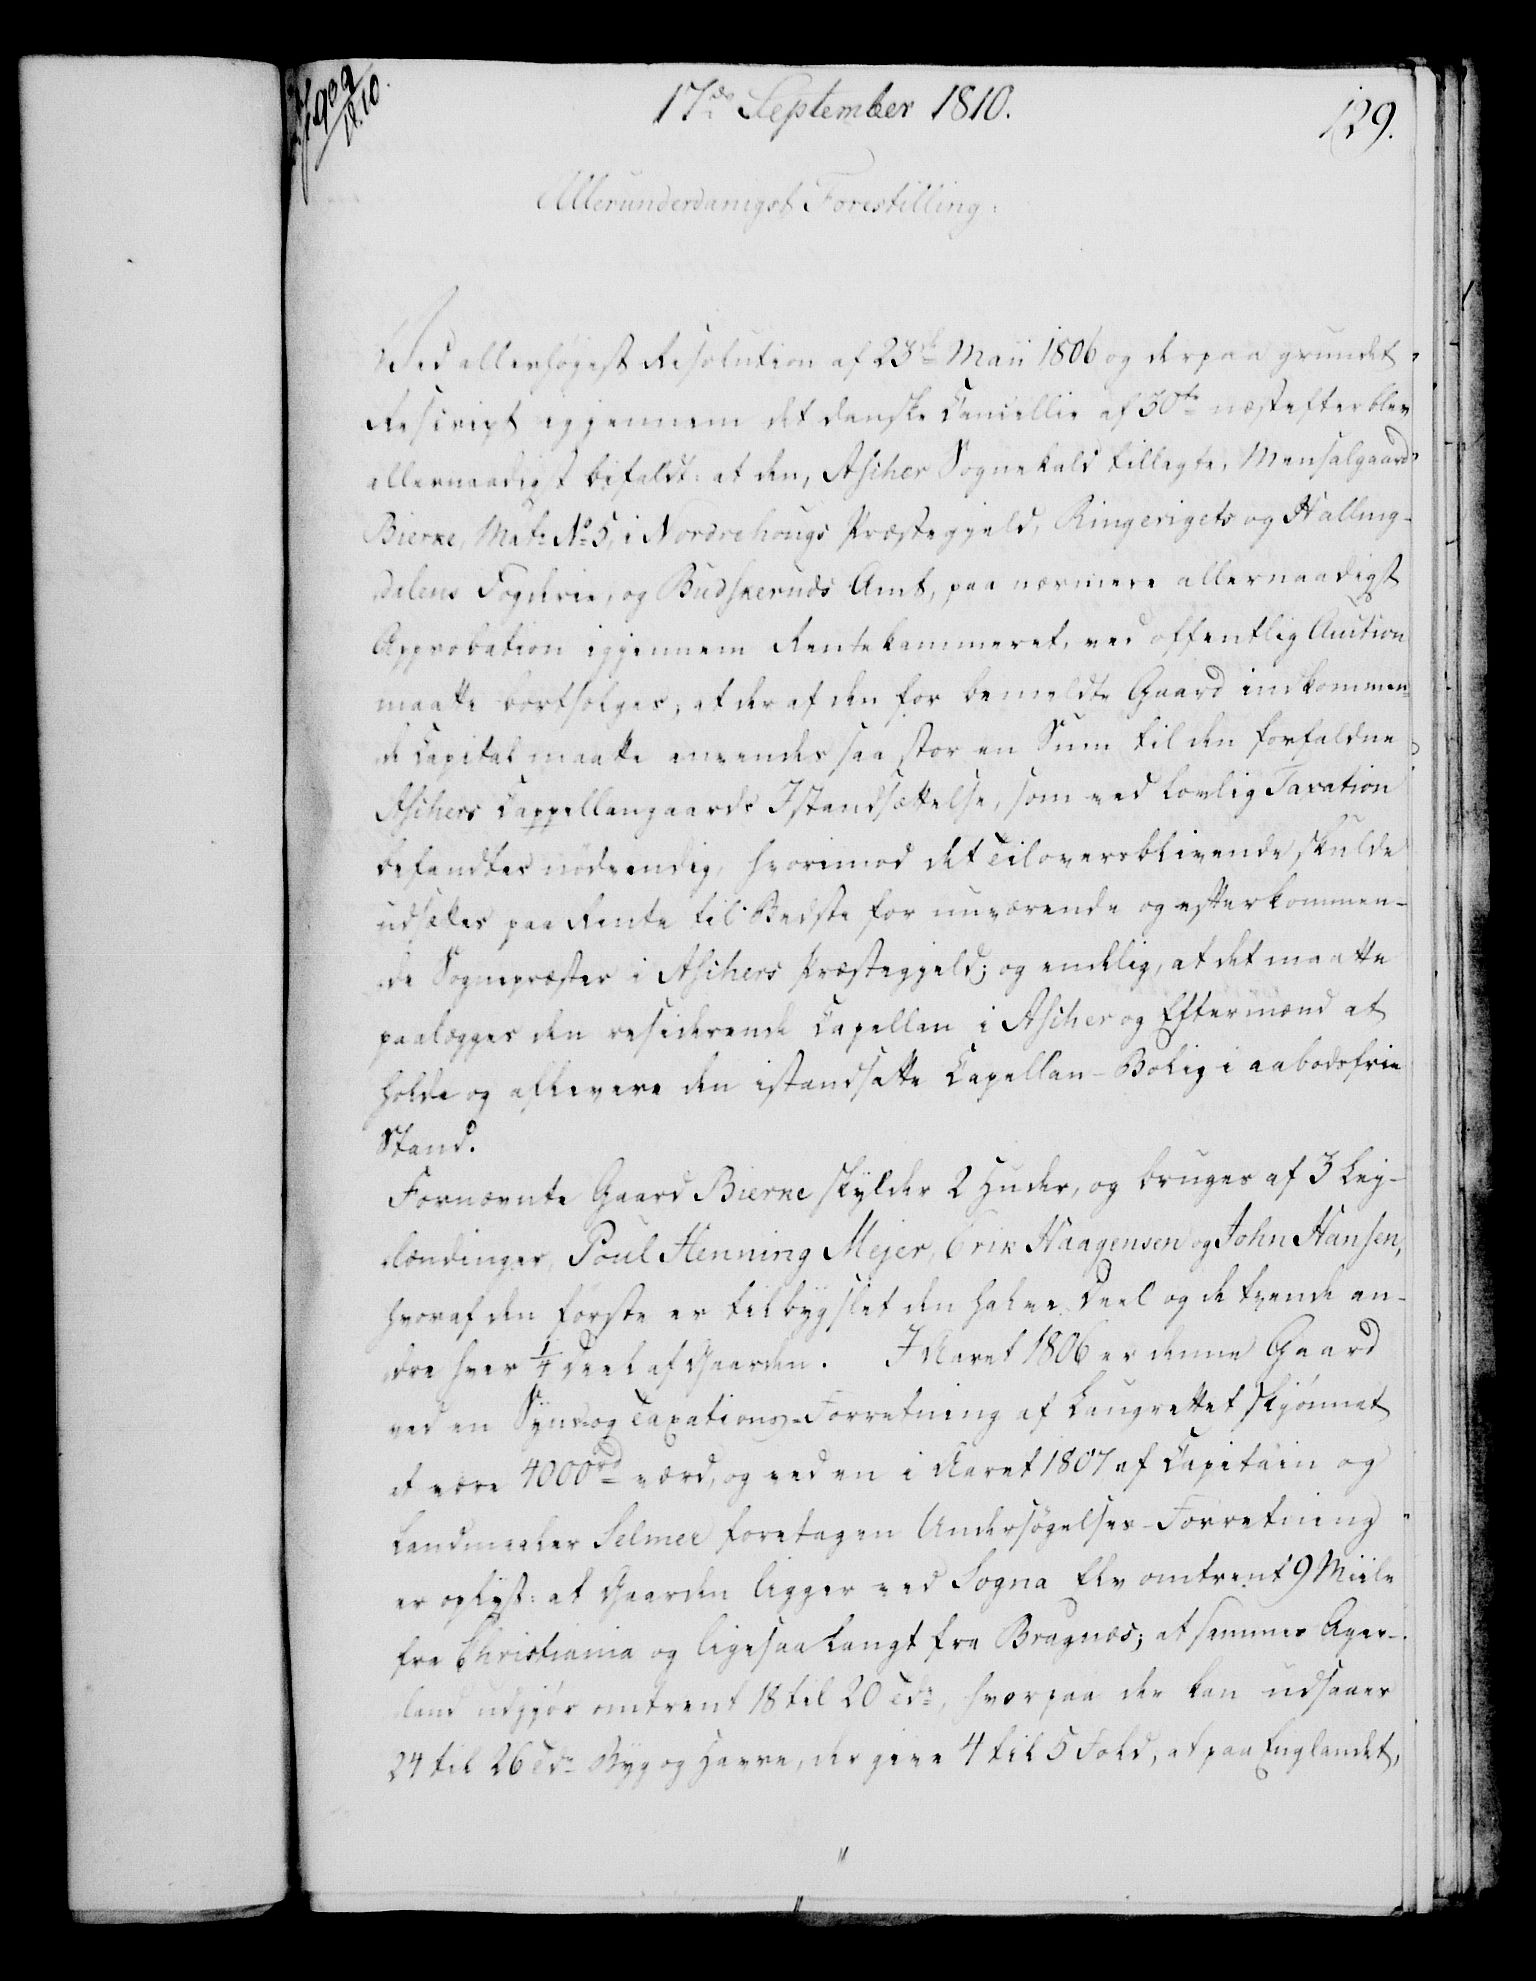 17de September 1810.
129.
909/1810.
Allerunderdanigst Forestilling:
Ved allerhøgest Resolution af 23de Maii 1806 og derpaa grundet
Rescript igjennem det danske Cancellie af 30te næstefter blev
allernaadigst befaldt: at den, Ascher Sognekald tillagte, Mensalgaard
Bierke, Mat: No 5, i Nordrehougs Præstegjeld, Ringerigets og Halling-
dalens Fogderie, og Budskeruds Amt, paa nærmere allernaadigst
Approbation igjennem Rentekammeret, ved offentlig Auction
maatte bortsælges; at der af den for bemeldte Gaard indkommen-
de Capital maatte anvendes saa stor en Sum til den forfaldne
Aschers Cappellangaards Istandsættelse, som ved lovlig Taxation
befandtes nödvendig, hvorimod det Tiloversblivende skulde
udsættes paa Rente til Bedste for nuværende og efterkommen-
de Sognepræster i Aschers Præstegjeld; og endelig, at det maatte
paalægges den residerende Capellan i Ascher og Eftermænd at
holde og aflevere den istandsatte Capellan-Bolig i aabodsfrie
Stand.
Fornævnte Gaard Bierke skylder 2 Huder, og bruges af 3 Ley-
lændinger, Poul Henning Mejer, Erik Haagensen og John Hansen,
hvoraf den første er tilbygslet den halve Deel og de tvende an-
dre hver 1/4 Deel af Gaarden. I Aaret 1806 er denne Gaard
ved en Syns- og Taxations-Forretning af Laugrettet skjönnet
at være 4000rd værd, og ved en i Aaret 1807 af Capitain og
Landmaaler Selmer foretagen Undersøgelses-Forretning
er oplyst: at Gaarden ligger ved Sogna Elv omtrent 9 Miile
fra Christiania og ligesaa langt fra Bragnæs; at sammes Ager-
land udgjör omtrent 18 til 20 Tdr, hvorpaa der kan udsaaes
24 til 26 Tdr Byg og Havre, der give 4 til 5 Fold, at paa Englandet,